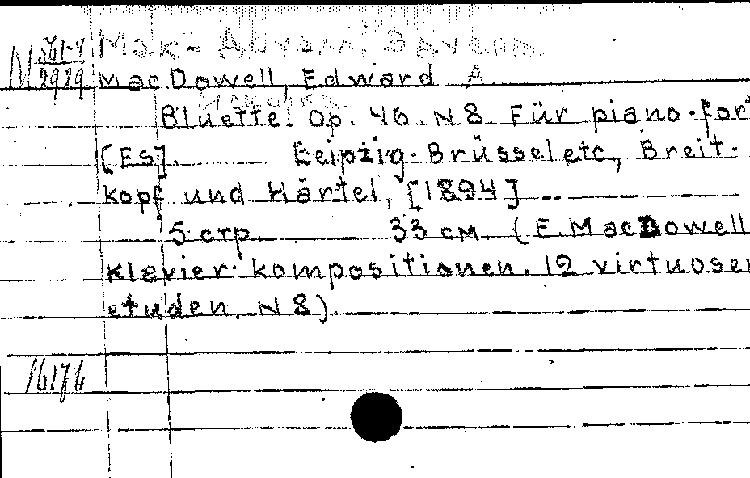 Мак-Доуэлл, Эдуард
N 361-4
2929
MacDowell, Edward A.
Bluette. Op. 46. N 8. Für piano-for
[Es]. Leipzig-Brüssel etc., Breit-
kopf und Härtel, [1894]
5 стр. 33 см. (E. MacDowell
Klavier-kompositionen. 12 virtuosen
etuden. N 8).
16176